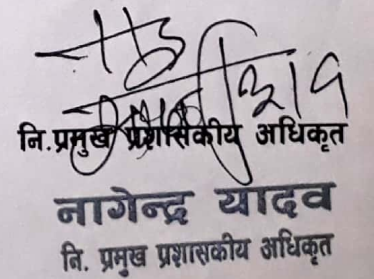 नि. प्रमुख प्रशासकीय अधिकृत
नागेन्द्र यादव
नि. प्रमुख प्रशासकीय अधिकृत